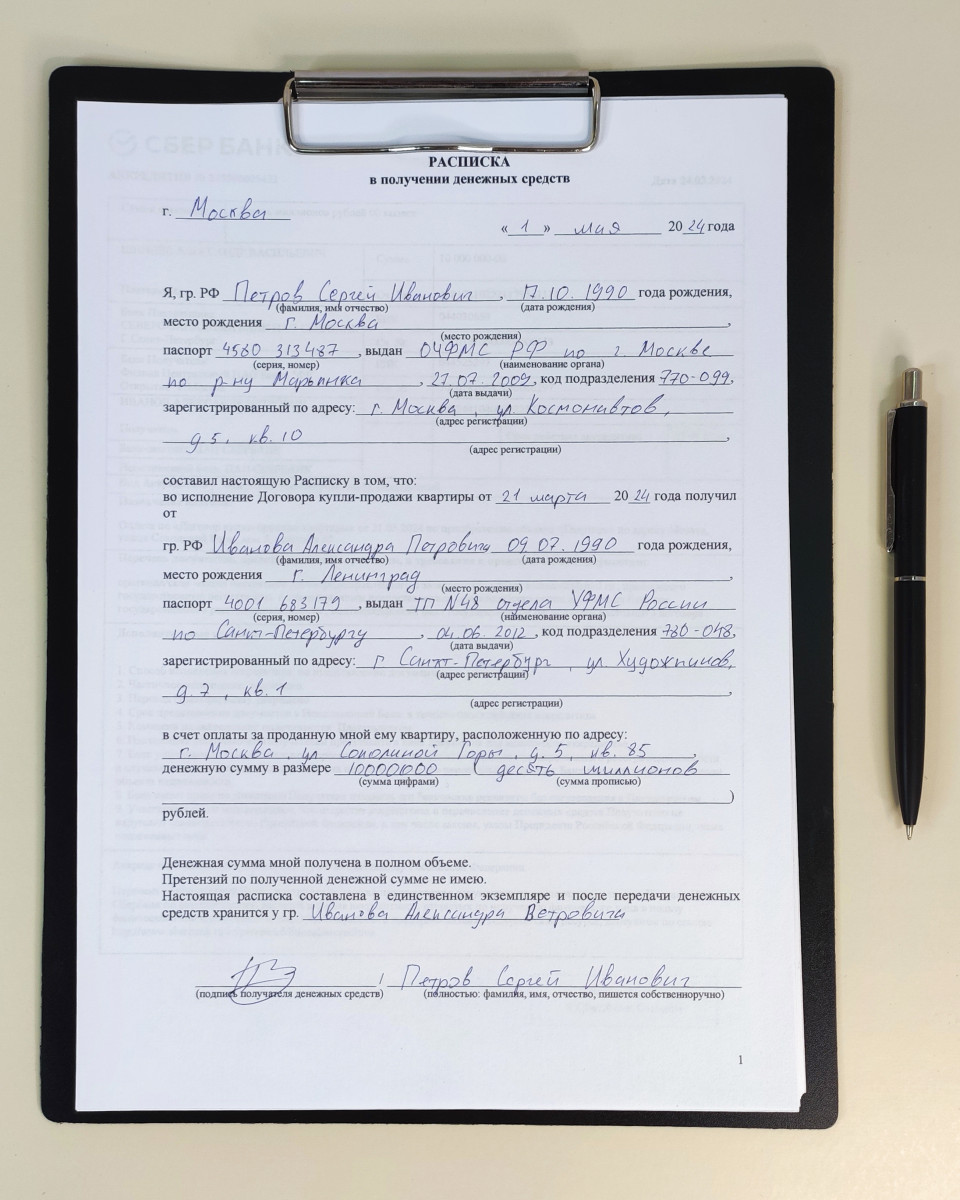 СБЕР БАНК
РАСПИСКА
в получении денежных средств
г. Москва
« 1 » мая 20 24 года
Я, гр. РФ Петров Сергей Иванович , 17.10.1990 года рождения,
(фамилия, имя отчество) (дата рождения)
место рождения г. Москва ,
(место рождения)
паспорт 4580 313487 , выдан ОУФМС РФ по г. Москве
(серия, номер) (наименование органа)
по р-ну Марьинка , 27.07.2009, код подразделения 770-099,
(дата выдачи)
зарегистрированный по адресу: г. Москва , ул Космонавтов ,
(адрес регистрации)
д 5, кв. 10 ,
(адрес регистрации)
составил настоящую Расписку в том, что:
во исполнение Договора купли-продажи квартиры от 21 марта 20 24 года получил
от
гр. РФ Иванова Александра Петровича 09.07.1990 года рождения,
(фамилия, имя отчество) (дата рождения)
место рождения г. Ленинград ,
(место рождения)
паспорт 4001 683179 , выдан ТП N48 отдела УФМС России
(серия, номер) (наименование органа)
по Санкт-Петербургу , 04.06.2012, код подразделения 780-048,
(дата выдачи)
зарегистрированный по адресу: г Санкт-Петербург , ул Художников,
(адрес регистрации)
д. 7 , кв. 1 ,
(адрес регистрации)
в счет оплаты за проданную мной ему квартиру, расположенную по адресу:
г. Москва , ул Соколиной Горы, д. 5, кв. 85 ,
денежную сумму в размере 10000000 ( десять миллионов
(сумма цифрами) (сумма прописью)
)
рублей.
Денежная сумма мной получена в полном объеме.
Претензий по полученной денежной сумме не имею.
Настоящая расписка составлена в единственном экземпляре и после передачи денежных
средств хранится у гр. Иванова Александра Петровича
/ Петров Сергей Иванович
(подпись получателя денежных средств) (полностью: фамилия, имя, отчество, пишется собственноручно)
1